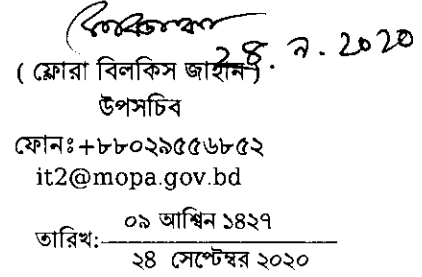 ২৪.৯.২০২০
( ফ্লোরা বিলকিস জাহান ).
উপসচিব
ফোনঃ+৮৮০২৯৫৫৬৮৫২
it2@mopa.gov.bd
০৯ আশ্বিন ১৪২৭
তারিখ:
২৪ সেপ্টেম্বর ২০২০